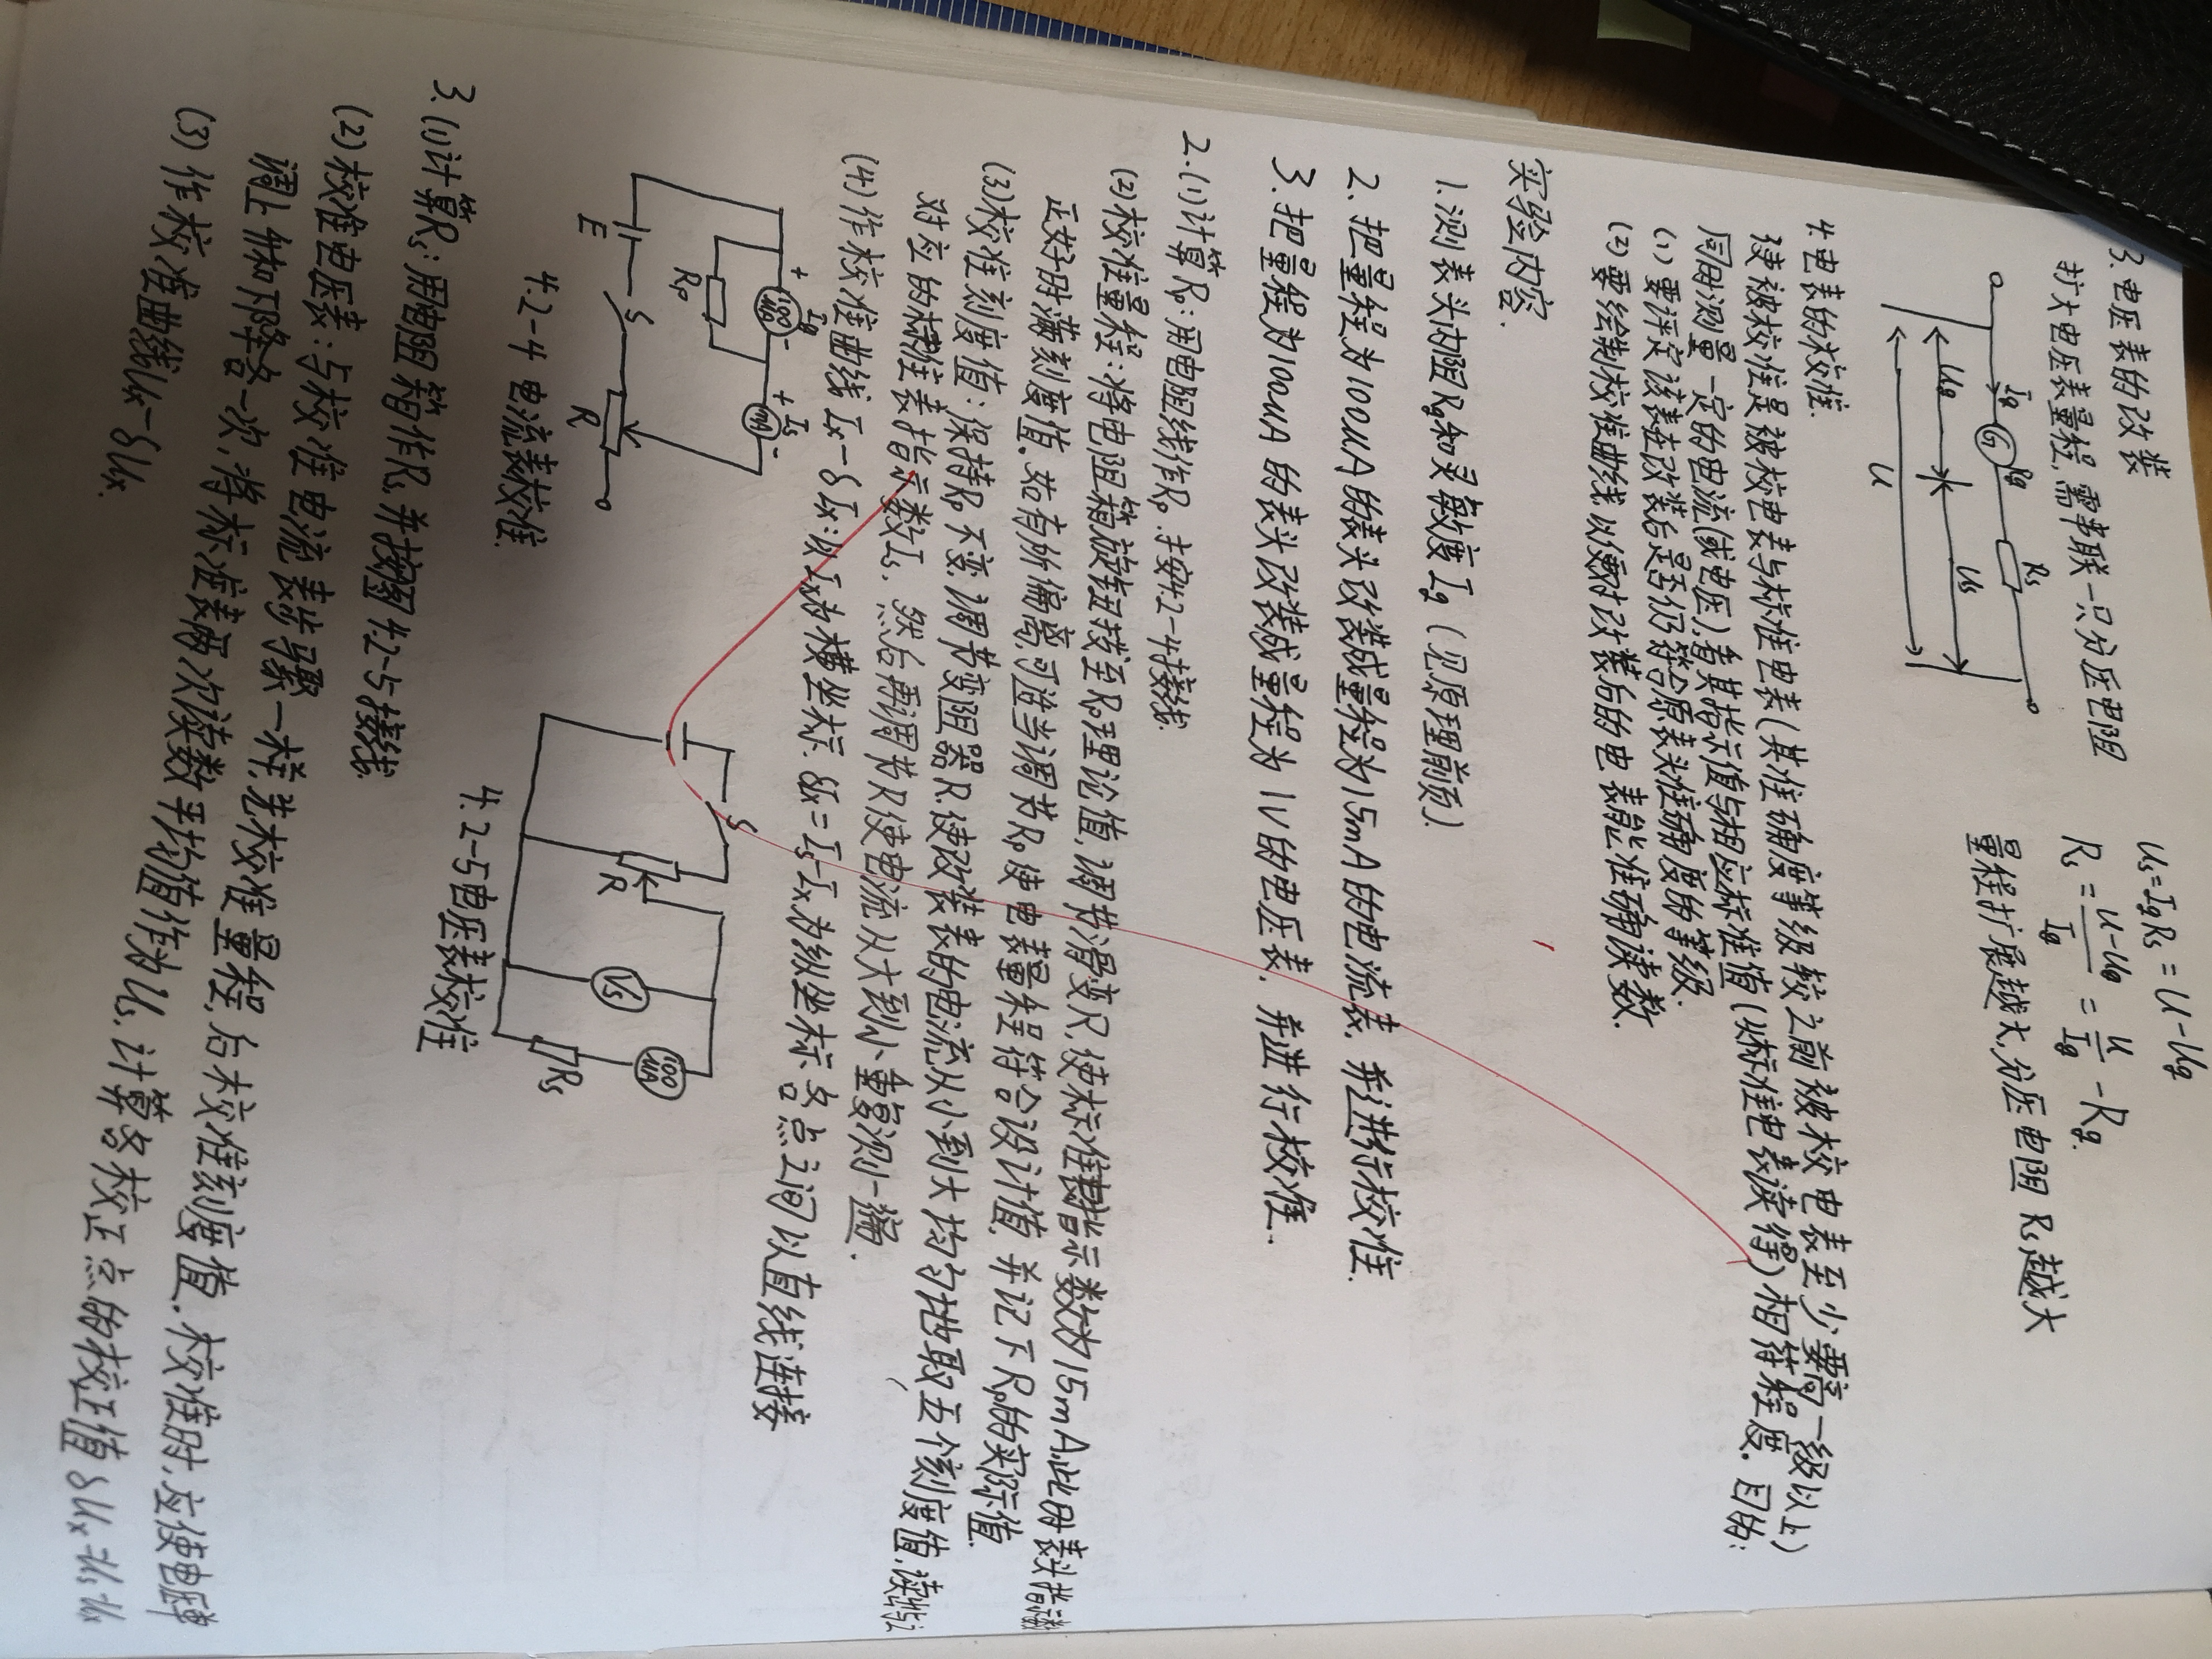 3.电压表的改装
扩大电压表量程,需串联一只分压电阻
Us=IgRs=U-Ug
Rs=(U-Ug)/Ig=U/Ig-Rg.
量程扩展越大,分压电阻Rs越大
Ig
G
Rg
Rs
Ug
Us
U
4.电表的校准.
使被校准是被校电表与标准电表(其准确度等级较之前被校电表至少要高一级以上)
同时测量一定的电流(或电压),看其指示值与相应标准值(从标准电表读得)相符程度.目的:
(1)要评定该表在改装后是否仍符合原表头准确度的等级.
(2)要绘制校准曲线以便对改装后的电表能准确读数.
实验内容.
1.测表头内阻Rg和灵敏度Ig(见原理前页).
2.把量程为100uA的表头改装成量程为15mA的电流表,并进行校准.
3.把量程为100uA的表头改装成量程为1V的电压表,并进行校准.
2.(1)计算Rp:用电阻线作Rp.并按4.2-4接线.
(2)校准量程:将电阻箱旋钮拨至Rp理论值,调节滑变R,使标准表指示数为15mA.此时表头指满
正好时满刻度值.如有所偏离,可适当调节Rp使电表量程符合设计值,并记下Rp的实际值.
(3)校准刻度值:保持Rp不变,调节变阻器R,使改装表的电流从小到大均匀地取五个刻度值,读出
对应的标准表指示数Is.然后再调节R使电流从大到小重复测一遍.
(4)作校准曲线Ix-δIx:以Ix为横坐标.δIx=Is-Ix为纵坐标各点之间以直线连接
E
S
R
Rp
+
Ig
100uA
-
+
Is
mA
-
4.2-4 电流表校准.
S
R
Vs
100uA
Rs
4.2-5电压表校准
3.(1)计算Rs:用电阻箱作Rs并按图4.2-5接线.
(2)校准电压表:与校准电流表步骤一样,先校准量程,后校准刻度值.校准时,应使电压单
调上升和下降各一次,将标准表两次读数平均值作为Us,计算各校正点的校正值δUx=Us-Ux
(3)作校准曲线Ux-δUx.